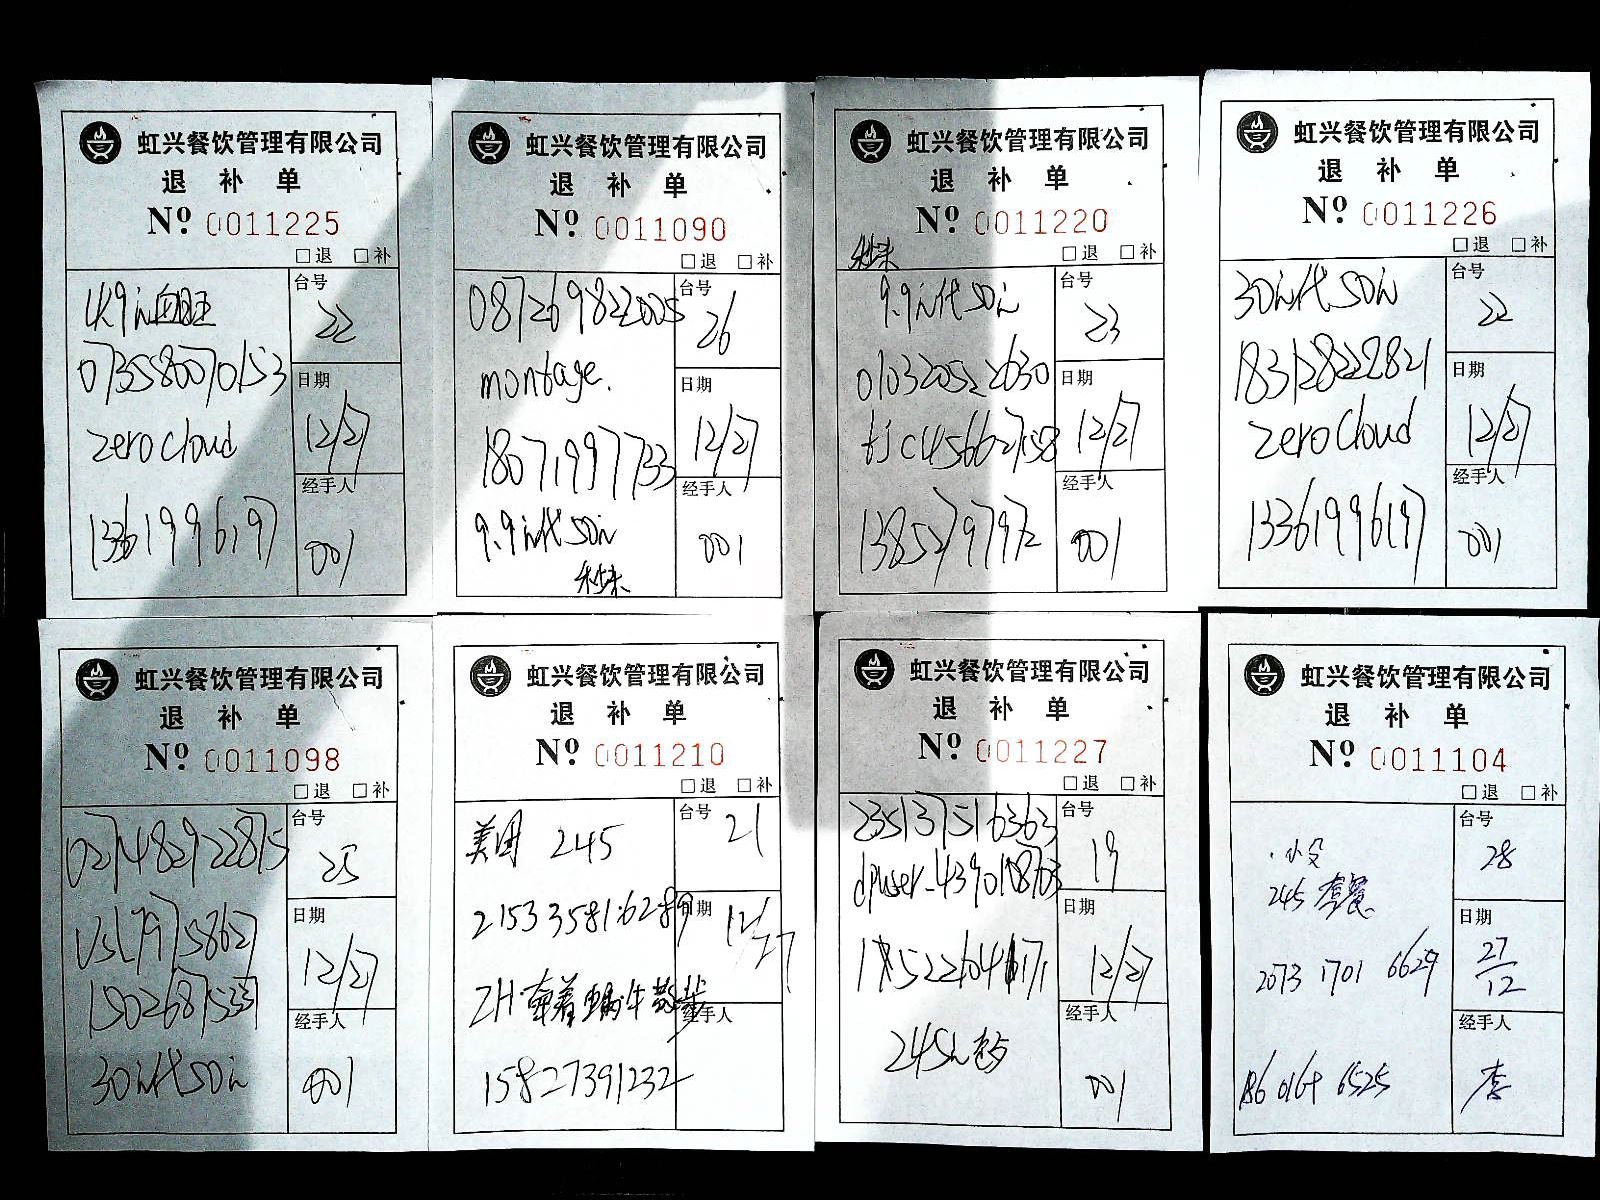 虹兴餐饮管理有限公司
退 补 单
Nº 0011225
□退 □补
台号
22
日期
12/27
经手人
001
073558070153
zero cloud
13361996197
虹兴餐饮管理有限公司
退 补 单
Nº 0011090
□退 □补
087269822005
montage.
18071997733
9.9元代50元
台号
26
日期
12/27
经手人
001
虹兴餐饮管理有限公司
退 补 单
Nº 0011220
□退 □补
9.9元代50元
010320522630
13852797972
台号
23
日期
12/27
经手人
001
虹兴餐饮管理有限公司
退 补 单
Nº 0011226
□退 □补
30元代50元
183128222821
zero cloud
13361996197
台号
22
日期
12/27
经手人
001
虹兴餐饮管理有限公司
退 补 单
Nº 0011098
□退 □补
027482922875
15026875331
30元代50元
台号
25
日期
12/27
经手人
001
虹兴餐饮管理有限公司
退 补 单
Nº 0011210
□退 □补
美团 245
215335816289
ZH·牵着蜗牛散步
15827391232
台号
21
日期
12/27
经手人
虹兴餐饮管理有限公司
退 补 单
Nº 0011227
□退 □补
235137516363
dpuser_4390108703
台号
19
日期
12/27
经手人
001
虹兴餐饮管理有限公司
退 补 单
Nº 0011104
□退 □补
245 套餐
2073 1701 6629
186 0164 6525
台号
28
日期
27
12
经手人
李